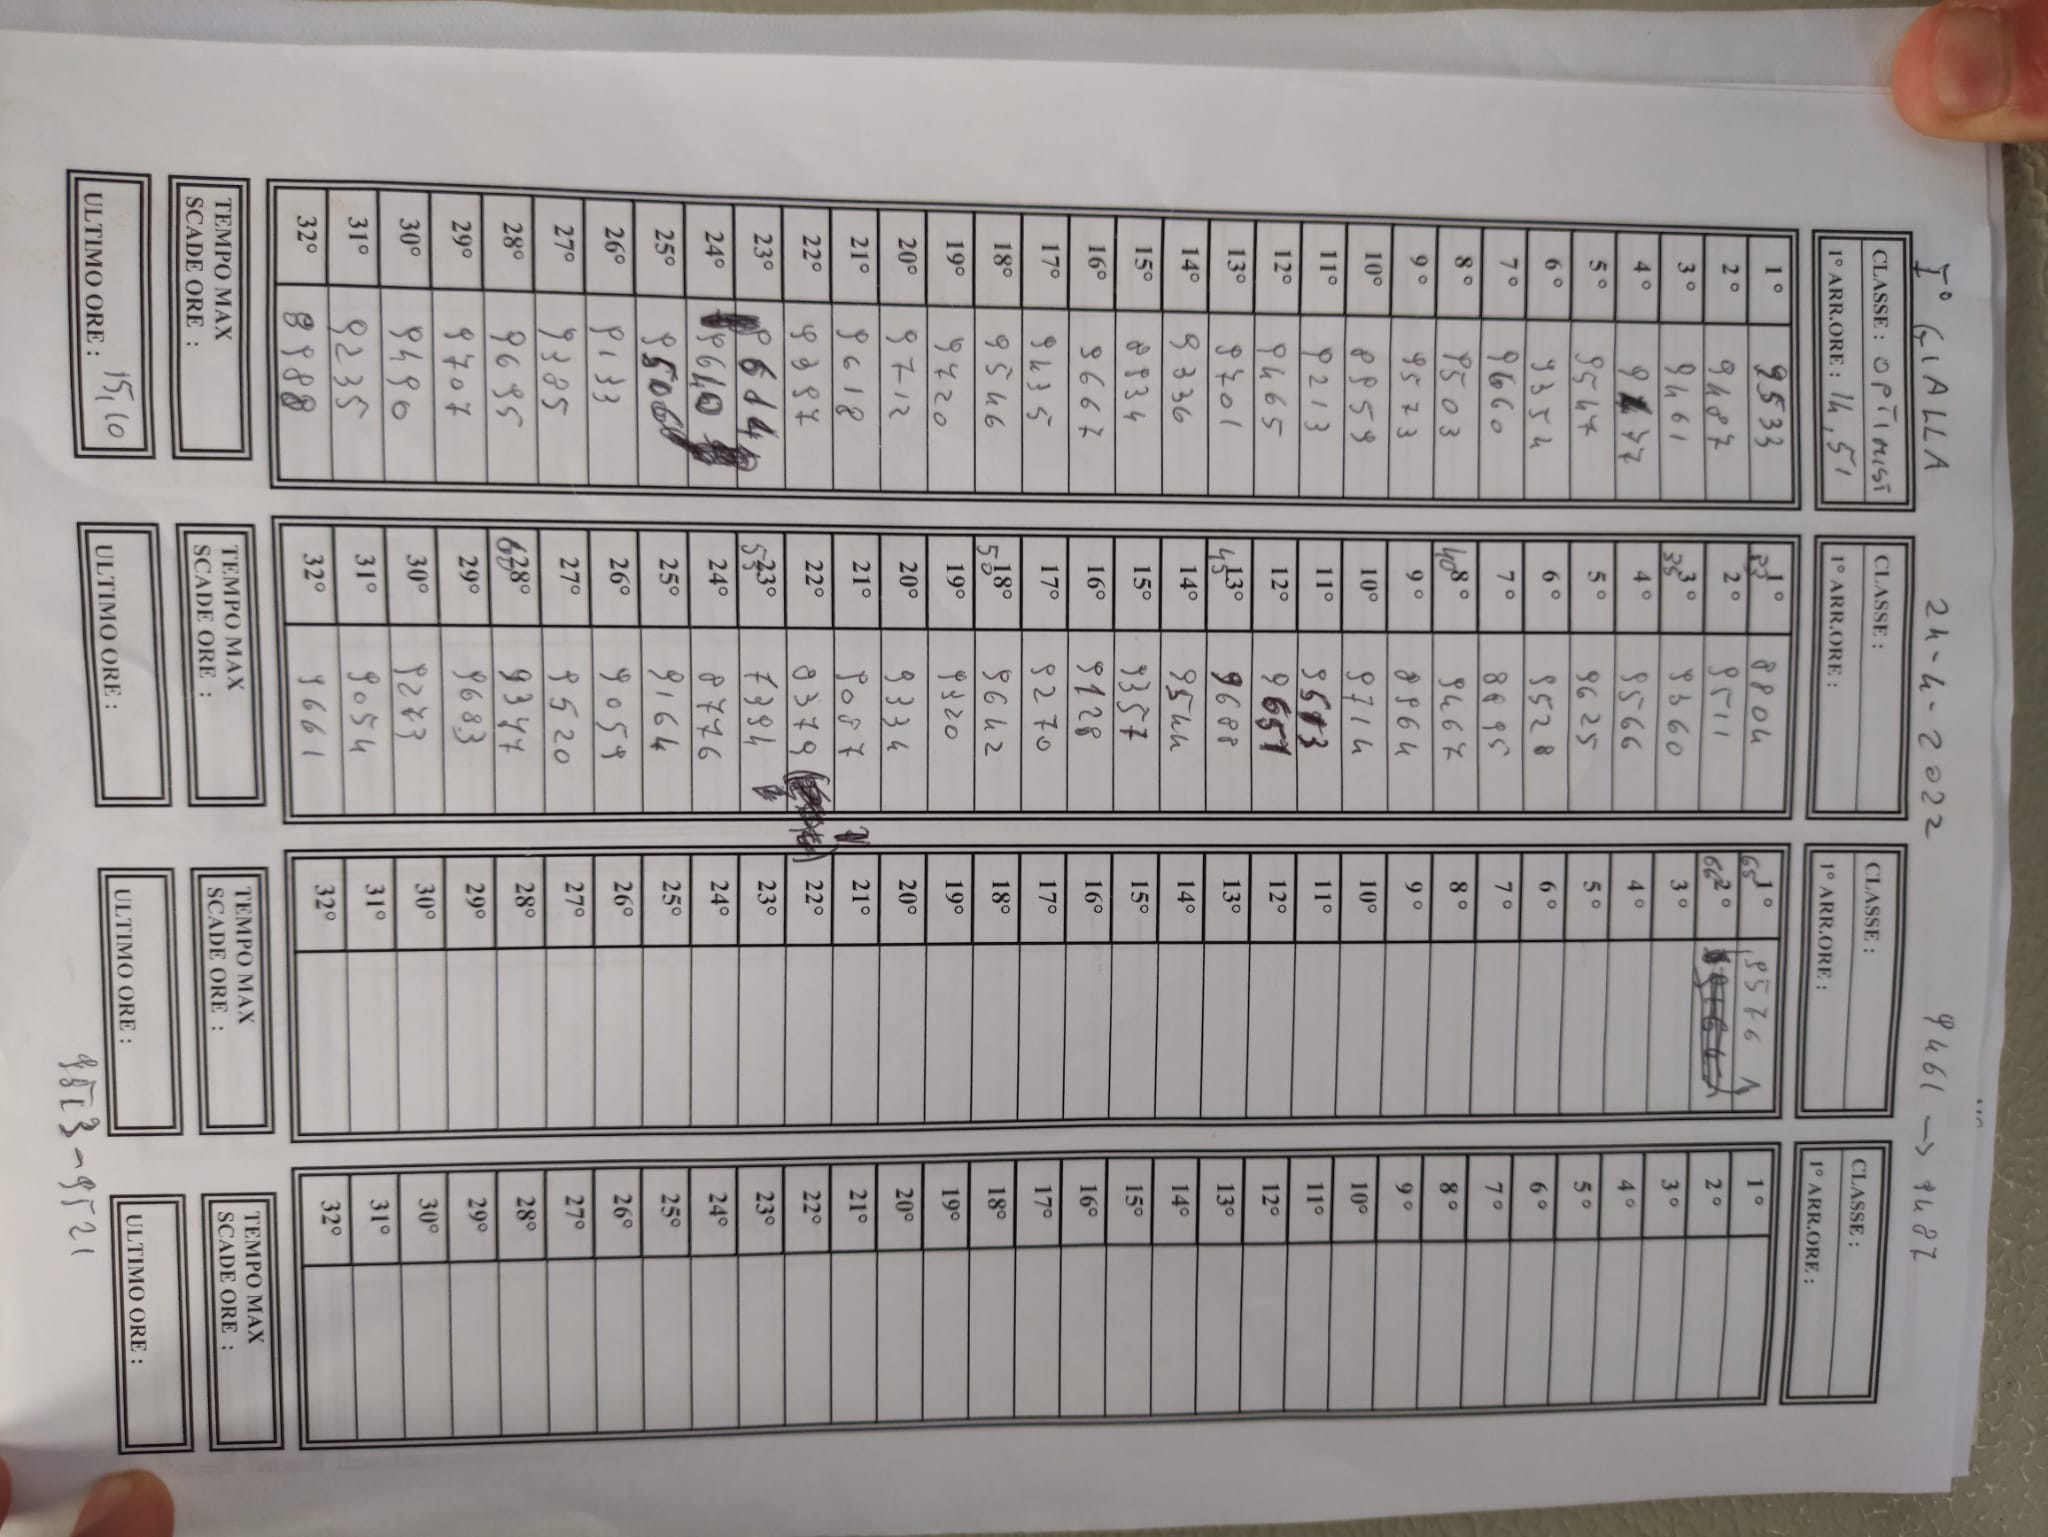 I° GIALLA 24-4-2022 9461 → 9487
CLASSE : OPTIMIST
1° ARR.ORE : 14,51
1° 9533
2° 9487
3° 9461
4° 9477
5° 9547
6° 9354
7° 9660
8° 9503
9° 9573
10° 8959
11° 9213
12° 9465
13° 9701
14° 9336
15° 8934
16° 9667
17° 9435
18° 9546
19° 9720
20° 9712
21° 9618
22° 9397
23° 9614
24° 9640
25° 9506
26° 9133
27° 9385
28° 9695
29° 9707
30° 9490
31° 9235
32° 8988
TEMPO MAX
SCADE ORE :
ULTIMO ORE : 15,10
CLASSE :
1° ARR.ORE :
33 1° 8804
2° 9511
35 3° 9360
4° 9566
5° 9625
6° 9528
7° 8895
40 8° 9467
9° 8964
10° 9714
11° 9513
12° 9651
45 13° 9688
14° 9544
15° 9357
16° 9128
17° 9270
50 18° 9642
19° 9320
20° 9334
21° 9087
22° 8379
55 23° 7394
24° 8776
25° 9164
26° 9059
27° 9520
60 28° 9377
29° 9683
30° 9273
31° 9054
32° 9661
TEMPO MAX
SCADE ORE :
ULTIMO ORE :
CLASSE :
1° ARR.ORE :
65 1° 9576
66 2°
3°
4°
5°
6°
7°
8°
9°
10°
11°
12°
13°
14°
15°
16°
17°
18°
19°
20°
21°
22°
23°
24°
25°
26°
27°
28°
29°
30°
31°
32°
TEMPO MAX
SCADE ORE :
ULTIMO ORE :
CLASSE :
1° ARR.ORE :
1°
2°
3°
4°
5°
6°
7°
8°
9°
10°
11°
12°
13°
14°
15°
16°
17°
18°
19°
20°
21°
22°
23°
24°
25°
26°
27°
28°
29°
30°
31°
32°
TEMPO MAX
SCADE ORE :
ULTIMO ORE :
9513-9521